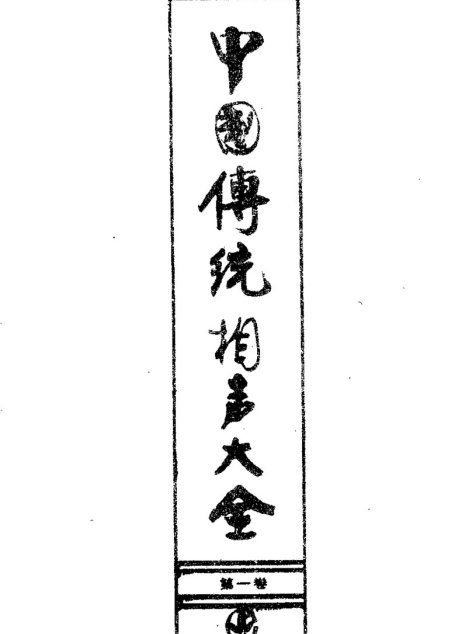 中国傳统相声大全
第一卷